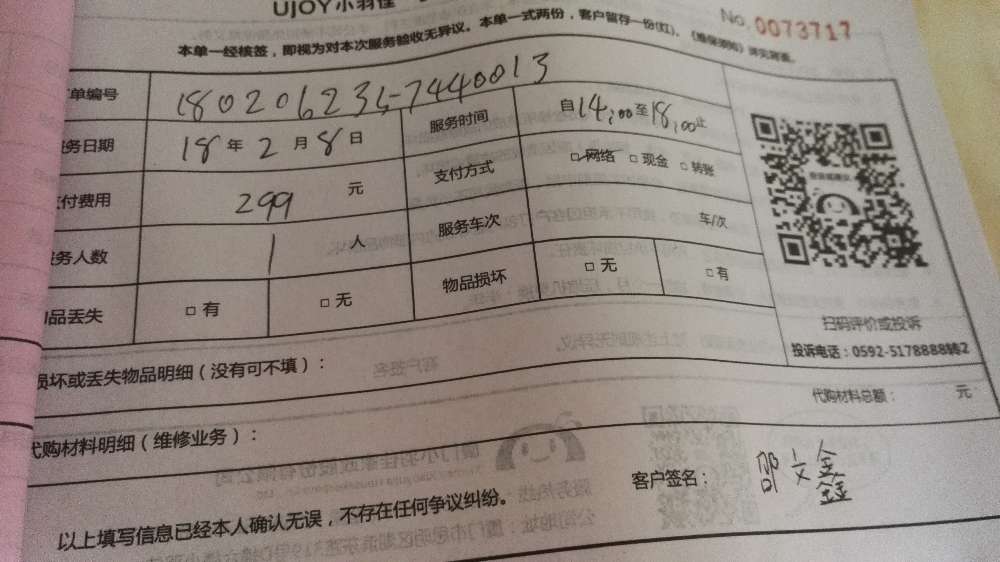 UJOY小羽佳
No.0073717
本单一经核签，即视为对本次服务验收无异议。本单一式两份，客户留存一份(红)。《维保须知》详见背面。
单编号 1802062315-7440013
务日期 18年2月8日 服务时间 自14:00至18:00止
付费用 299元 支付方式 □网络 □现金 □转账
务人数 1人 服务车次 车/次
品丢失 □有 □无 物品损坏 □无 □有
扫码评价或投诉
投诉电话：0592-5178888转2
损坏或丢失物品明细（没有可不填）：
代购材料总额： 元
代购材料明细（维修业务）：
客户签名： 邵文鑫
以上填写信息已经本人确认无误，不存在任何争议纠纷。